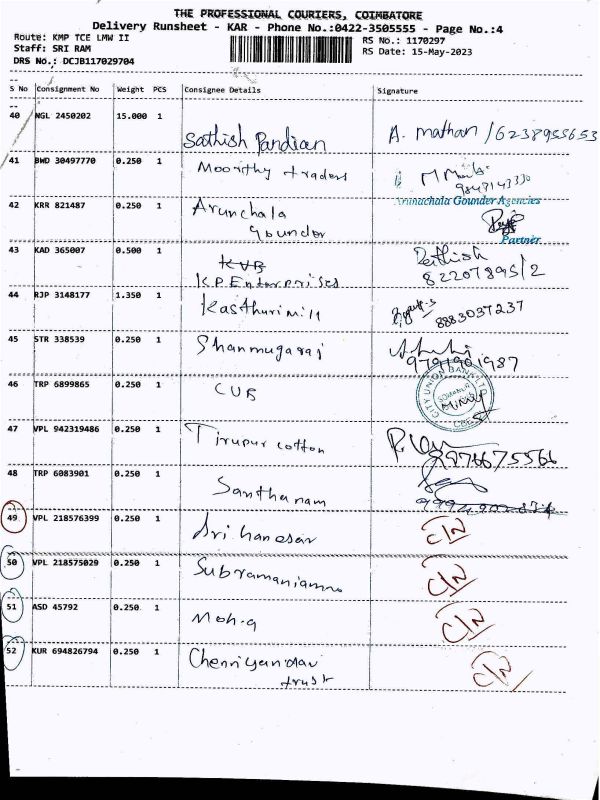 THE PROFESSIONAL COURIERS, COIMBATORE
Delivery Runsheet - KAR - Phone No.:0422-3505555 - Page No.:4
Route: KMP TCE LMW II
RS No.: 1170297
Staff: SRI RAM
RS Date: 15-May-2023
DRS No.: DCJB117029704
S No Consignment No Weight PCS Consignee Details Signature
40 NGL 2450202 15.000 1 Sathish Pandian A. mathan / 6238955653
41 BWD 30497770 0.250 1 Moorthy traders
Arunachala Gounder Agencies
42 KRR 821487 0.250 1 Arunchala
Gounder
Partner
43 KAD 365007 0.500 1 KVB
KP Enterprises
82207895/2
44 RJP 3148177 1.350 1 Kasthuri mill 8883037237
45 STR 338539 0.250 1 Shanmugaraj 9791901987
46 TRP 6899865 0.250 1 CUB CITY UNION BANK LTD
47 VPL 942319486 0.250 1 Tirupur cotton
48 TRP 6083901 0.250 1 Santhanam
49 VPL 218576399 0.250 1 C/N
50 VPL 218575029 0.250 1 C/N
51 ASD 45792 0.250 1 C/N
52 KUR 694826794 0.250 1 C/N
trust